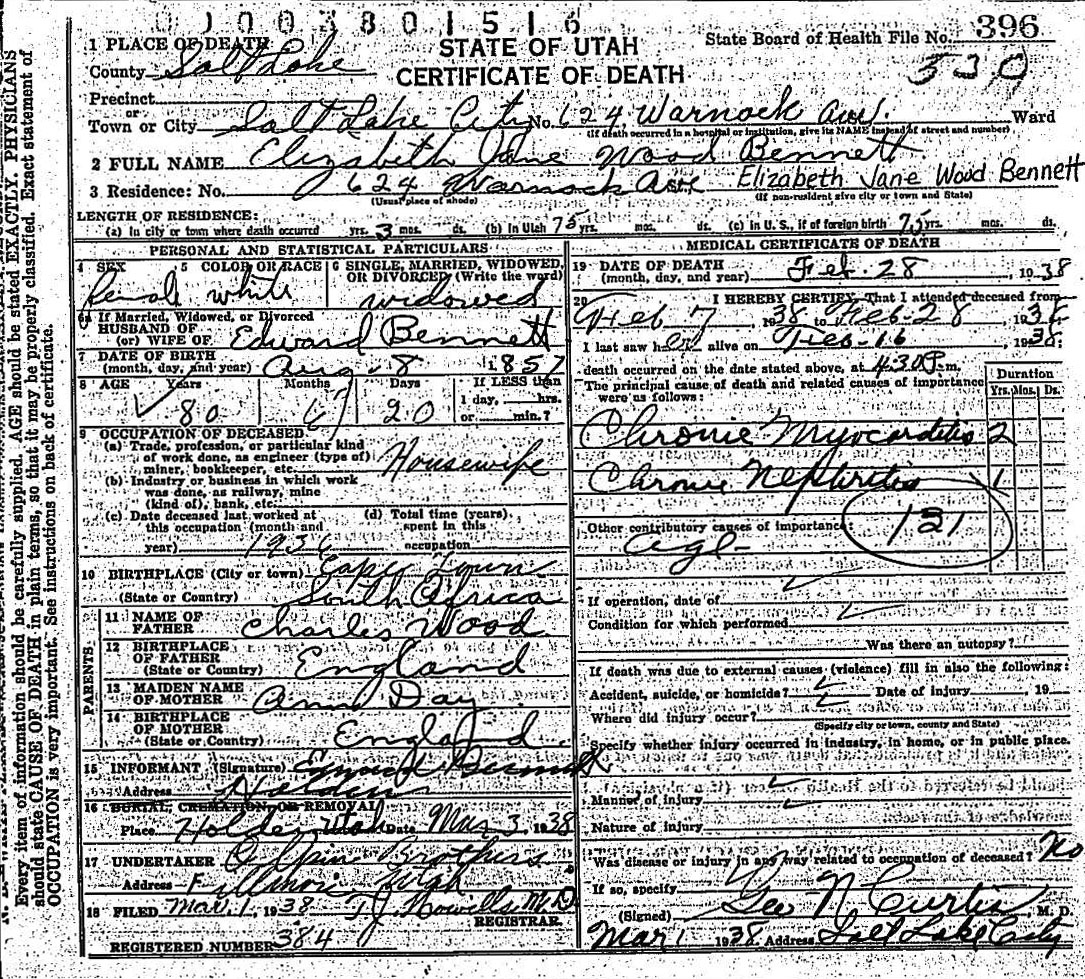 01003801516
STATE OF UTAH
CERTIFICATE OF DEATH
State Board of Health File No. 396
530
1 PLACE OF DEATH
County Salt Lake
Precinct
or
Town or City Salt Lake City No. 624 Warnock Ave. Ward
(If death occurred in a hospital or institution, give its NAME instead of street and number)
2 FULL NAME Elizabeth Jane Wood Bennett
3 Residence: No. 624 Warnock Ave Elizabeth Jane Wood Bennett
(Usual place of abode) (If non-resident give city or town and State)
LENGTH OF RESIDENCE:
(a) In city or town where death occurred yrs. 3 mos. ds. (b) In Utah 75 yrs. mos. ds. (c) In U.S., if of foreign birth 75 yrs. mos. ds.
PERSONAL AND STATISTICAL PARTICULARS
4 SEX 5 COLOR OR RACE 6 SINGLE, MARRIED, WIDOWED, OR DIVORCED (Write the word)
female white widowed
6a If Married, Widowed, or Divorced
HUSBAND OF
(or) WIFE OF Edward Bennett
7 DATE OF BIRTH
(month, day, and year) Aug. 8 1857
8 AGE Years Months Days If LESS than
1 day, hrs.
80 6 20 or min.?
9 OCCUPATION OF DECEASED
(a) Trade, profession, or particular kind
of work done, as engineer (type of)
miner, bookkeeper, etc. Housewife
(b) Industry or business in which work
was done, as railway, mine
(kind of), bank, etc.
(c) Date deceased last worked at (d) Total time (years)
this occupation (month and spent in this
year) 1936 occupation
10 BIRTHPLACE (City or town) Cape Town
(State or Country) South Africa
PARENTS
11 NAME OF
FATHER Charles Wood
12 BIRTHPLACE
OF FATHER England
(State or Country)
13 MAIDEN NAME
OF MOTHER Ann Day
14 BIRTHPLACE
OF MOTHER England
(State or Country)
15 INFORMANT (Signature)
Address Holden
16 BURIAL, CREMATION, OR REMOVAL
Place Holden Utah Date Mar 3, 1938
17 UNDERTAKER Olpine Brothers
Address Fillmore Utah
18 FILED Mar. 1, 1938 T.J. Howells M.D.
REGISTRAR.
REGISTERED NUMBER 384
MEDICAL CERTIFICATE OF DEATH
19 DATE OF DEATH
(month, day, and year) Feb. 28, 1938
20 I HEREBY CERTIFY, That I attended deceased from
Feb 7 1938 to Feb-28, 193
I last saw her alive on Feb-16 1938;
death occurred on the date stated above, at 4:30 P. m.
The principal cause of death and related causes of importance
were as follows:
Duration
Yrs. Mos. Ds.
Chronic Myocarditis 2
Chronic Nephritis 1
131
Other contributory causes of importance:
age
If operation, date of
Condition for which performed
Was there an autopsy?
If death was due to external causes (violence) fill in also the following:
Accident, suicide, or homicide? Date of injury , 19
Where did injury occur?
(Specify city or town, county and State)
Specify whether injury occurred in industry, in home, or in public place.
Manner of injury
Nature of injury
Was disease or injury in any way related to occupation of deceased? No
If so, specify
(Signed) Geo N Curtis, M. D.
Mar 1 1938 Address Salt Lake City
Every item of information should be carefully supplied. AGE should be stated EXACTLY. PHYSICIANS
should state CAUSE OF DEATH in plain terms, so that it may be properly classified. Exact statement of
OCCUPATION is very important. See instructions on back of certificate.